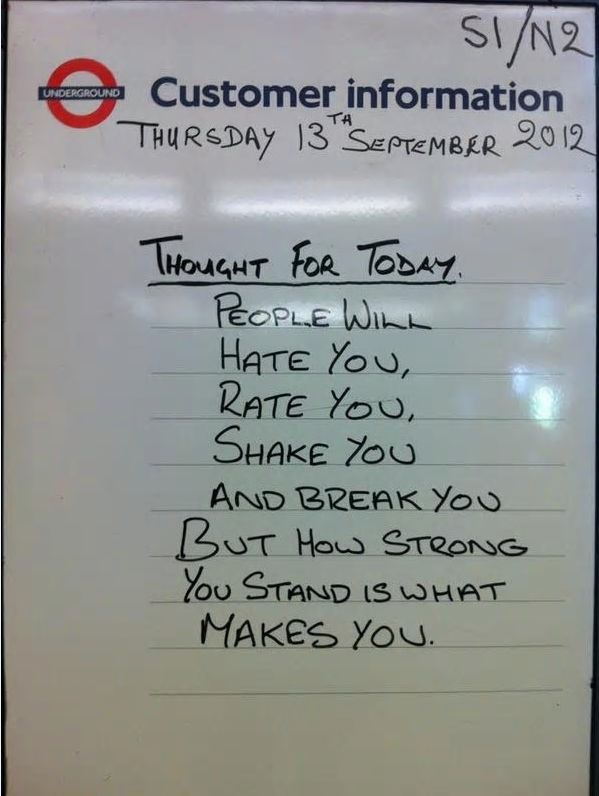 SI/N2
UNDERGROUND
Customer information
THURSDAY 13TH SEPTEMBER 2012
THOUGHT FOR TODAY.
PEOPLE WILL
HATE YOU,
RATE YOU,
SHAKE YOU
AND BREAK YOU
BUT HOW STRONG
YOU STAND IS WHAT
MAKES YOU.